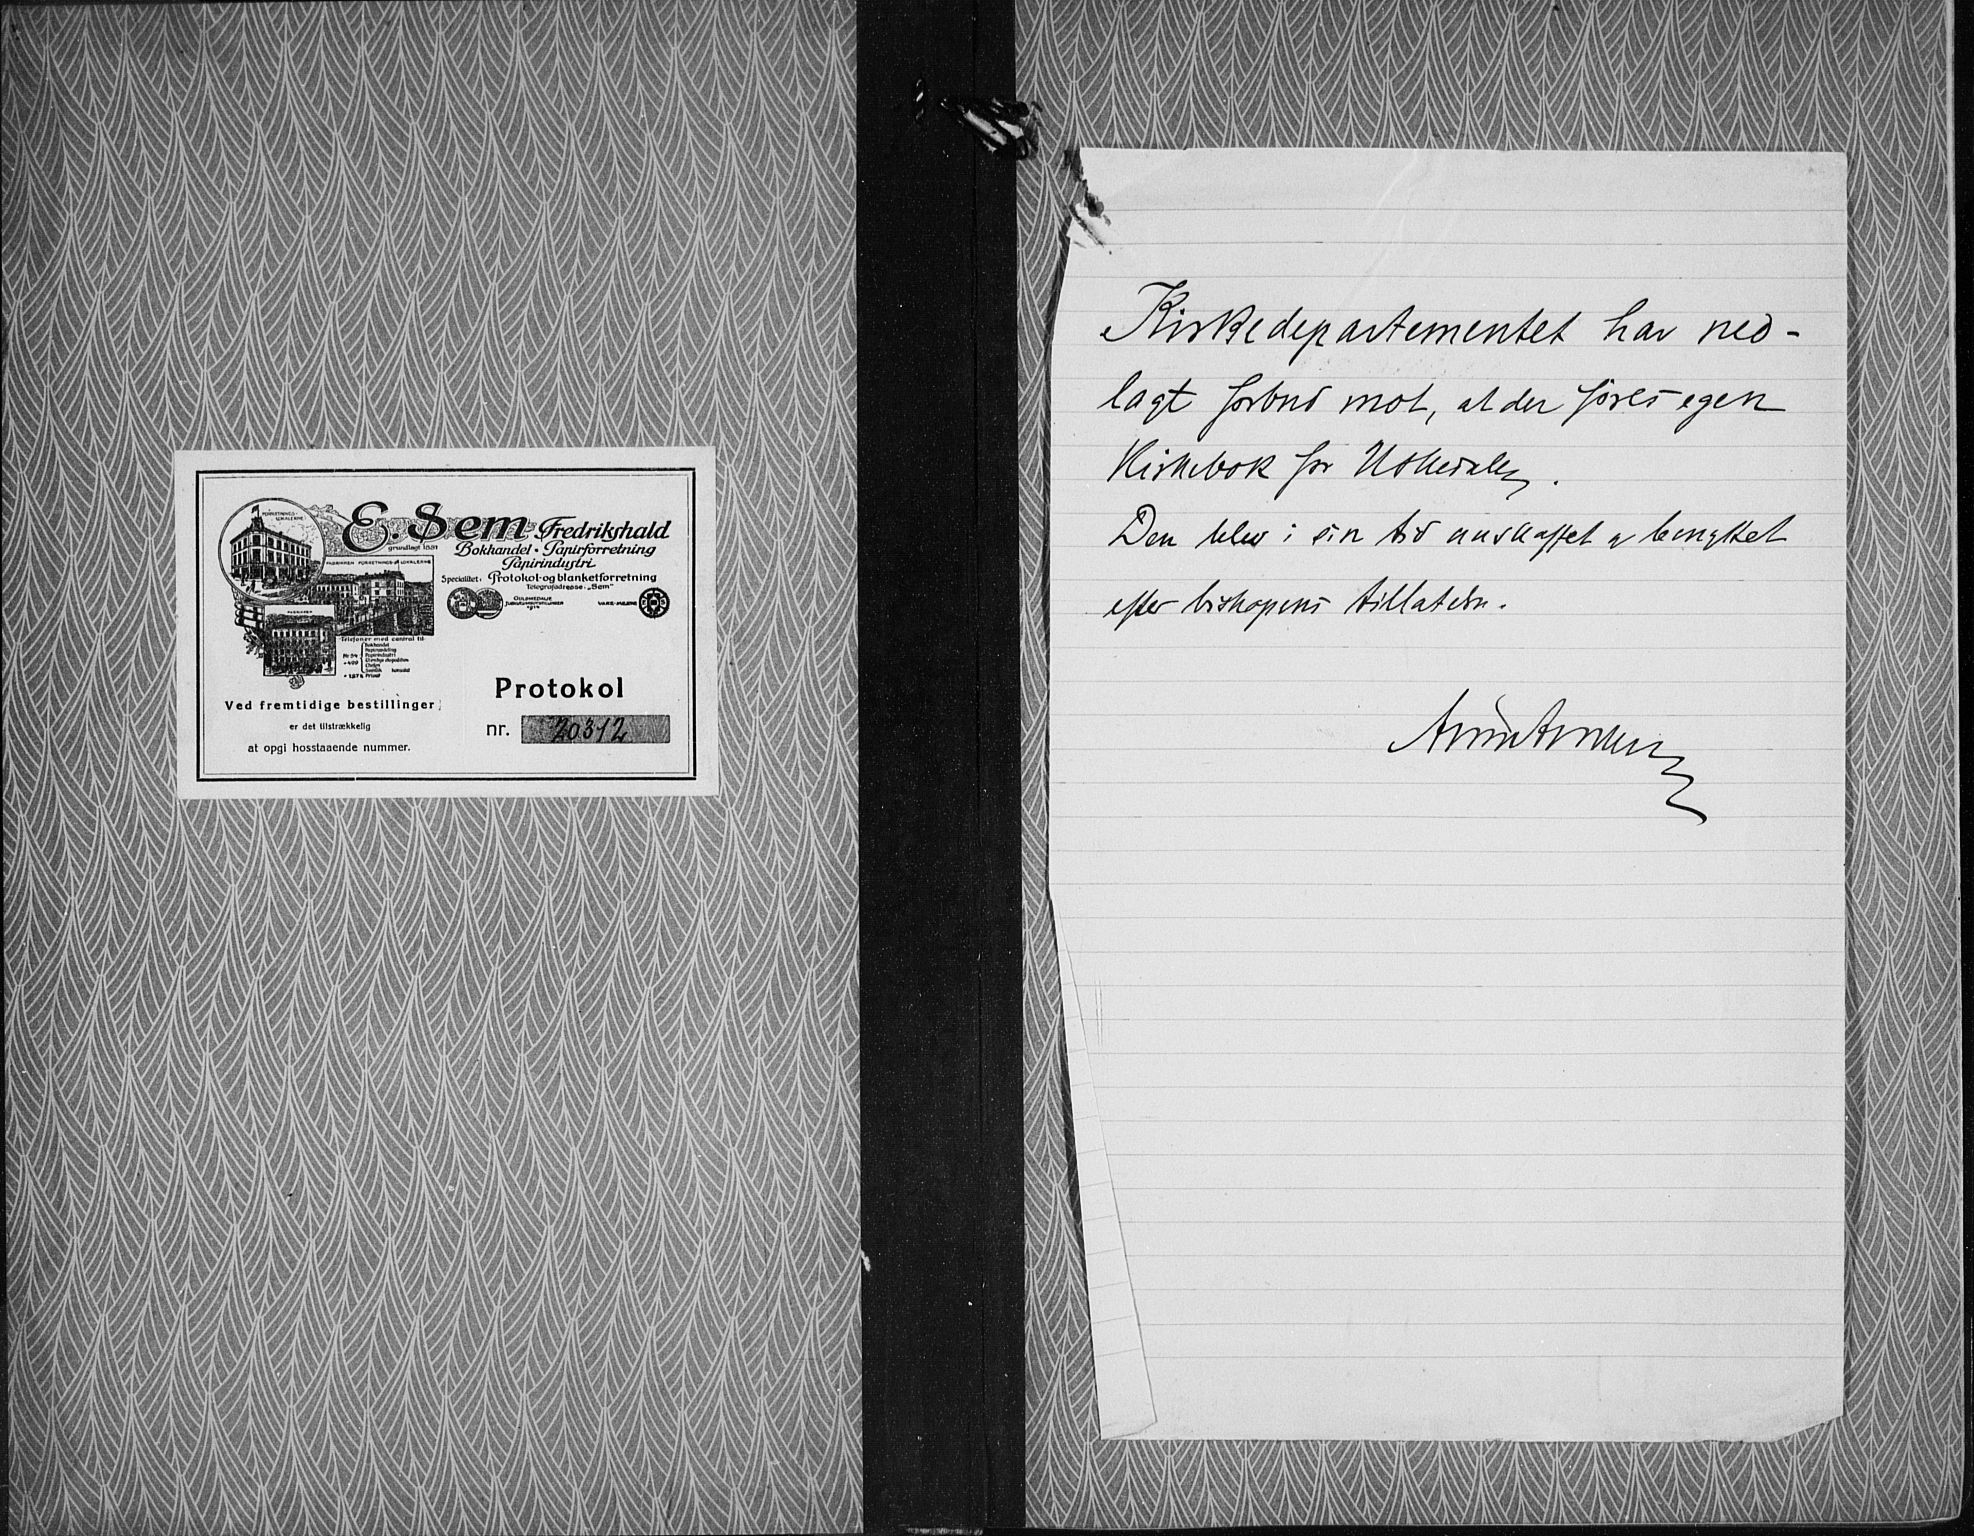 FORRETNINGS-
LOKALERNE
E. Sem Fredrikshald
grundlagt 1851
Bokhandel • Papirforretning
Papirindustri
FABRIKKEN FORRETNINGS-LOKALERNE
Specialitet: Protokol- og blanketforretning
Telegrafadresse: „Sem"
GULDMEDALJE
JUBILÆUMSUTSTILLINGEN
1914
VARE-MERKE
Telefoner med central til
Bokhandel
Papiravdeling
Papirindustri
Privat
Ved fremtidige bestillinger
er det tilstrækkelig
at opgi hosstaaende nummer.
Protokol
nr. 20312
Kirkedepartementet har ned-
lagt forbud mot, at der føres egen
Kirkebok for Uskedalen.
Den blev i sin tid anskaffet og benyttet
efter biskopens tillatelse.